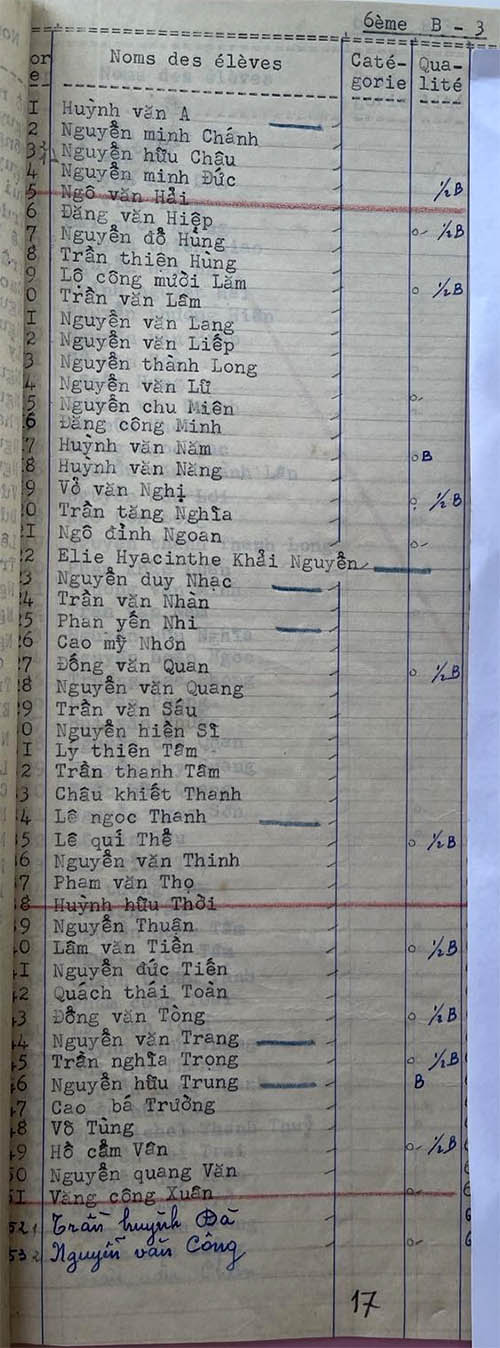 6ème B - 3
or Noms des élèves Caté- Qua-
e gorie lité
I Huỳnh văn A
2 Nguyễn minh Chánh
3 Nguyễn hữu Châu
4 Nguyễn minh Đức
5 Ngô văn Hải ½B
6 Đặng văn Hiệp
7 Nguyễn đỗ Hùng o- ½B
8 Trần thiện Hùng
9 Lộ công mười Lăm
0 Trần văn Lâm o ½B
I Nguyễn văn Lang
2 Nguyễn văn Liếp
3 Nguyễn thành Long
4 Nguyễn văn Lữ
5 Nguyễn chu Miên o-
6 Đặng công Minh
7 Huỳnh văn Năm
8 Huỳnh văn Năng o B
9 Võ văn Nghị
0 Trần tăng Nghĩa o ½B
I Ngô đình Ngoan
2 Elie Hyacinthe Khải Nguyễn o-
3 Nguyễn duy Nhạc
4 Trần văn Nhàn
5 Phan yến Nhi
6 Cao mỹ Nhơn
7 Đống văn Quan o ½B
8 Nguyễn văn Quang
9 Trần văn Sáu
0 Nguyễn hiền Sĩ
I Ly thiên Tâm
2 Trần thanh Tâm
3 Châu khiết Thanh
4 Lê ngọc Thanh
5 Lê quí Thể o ½B
6 Nguyễn văn Thinh
7 Phạm văn Thọ
8 Huỳnh hữu Thời
9 Nguyễn Thuận
40 Lâm văn Tiền o ½B
4I Nguyễn đức Tiến
42 Quách thái Toàn
43 Đồng văn Tòng o ½B
44 Nguyễn văn Trang
45 Trần nghĩa Trọng o ½B
46 Nguyễn hữu Trung B
47 Cao bá Trường
48 Võ Tùng
49 Hồ cẩm Vân o- ½B
50 Nguyễn quang Văn
5I Văng công Xuân o-
52 1 Trần huỳnh Đà
53 2 Nguyễn văn Công o-
17